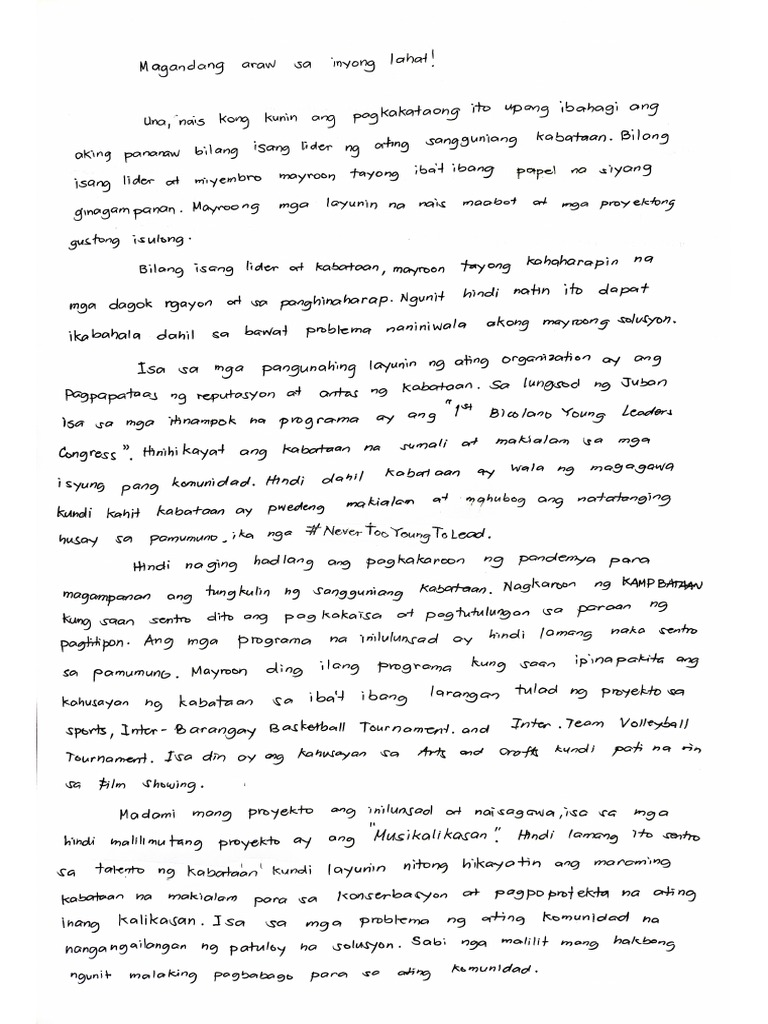 Magandang araw sa inyong lahat!
Una, nais kong kunin ang pagkakataong ito upang ibahagi ang
aking pananaw bilang isang lider ng ating sangguniang kabataan. Bilang
isang lider at miyembro mayroon tayong iba't ibang papel na siyang
ginagampanan. Mayroong mga layunin na nais maabot at mga proyektong
gustong isulong.
Bilang isang lider at kabataan, mayroon tayong kahaharapin na
mga dagok ngayon at sa panghinaharap. Ngunit hindi natin ito dapat
ikabahala dahil sa bawat problema naniniwala akong mayroong solusyon.
Isa sa mga pangunahing layunin ng ating organization ay ang
Pagpapataas ng reputasyon at antas ng kabataan. Sa lungsod ng Juban
isa sa mga itinampok na programa ay ang "1st Bicolano Young Leaders
Congress". Hinihikayat ang kabataan na sumali at makialam sa mga
isyung pang komunidad. Hindi dahil kabataan ay wala ng magagawa
kundi kahit kabataan ay pwedeng makialam at mahubog ang natatanging
husay sa pamumuno, ika nga #NeverTooYoungToLead.
Hindi naging hadlang ang pagkakaroon ng pandemya para
magampanan ang tungkulin ng sangguniang kabataan. Nagkaroon ng KAMPBATAAN
kung saan sentro dito ang pagkakaisa at pagtutulungan sa paraan ng
pagtitipon. Ang mga programa na inilulunsad ay hindi lamang naka sentro
sa pamumuno. Mayroon ding ilang programa kung saan ipinapakita ang
kahusayan ng kabataan sa iba't ibang larangan tulad ng proyekto sa
sports, Inter-Barangay Basketball Tournament. and Inter. Team Volleyball
Tournament. Isa din ay ang kahusayan sa Arts and Crafts kundi pati na rin
sa Film showing.
Madami mang proyekto ang inilunsad at naisagawa, isa sa mga
hindi malilimutang proyekto ay ang "Musikalikasan". Hindi lamang ito sentro
sa talento ng kabataan kundi layunin nitong hikayatin ang maraming
kabataan na makialam para sa Konserbasyon at pagpoprotekta na ating
inang kalikasan. Isa sa mga problema ng ating komunidad na
nangangailangan ng patuloy na solusyon. Sabi nga maliit mang hakbang
ngunit malaking pagbabago para sa ating komunidad.